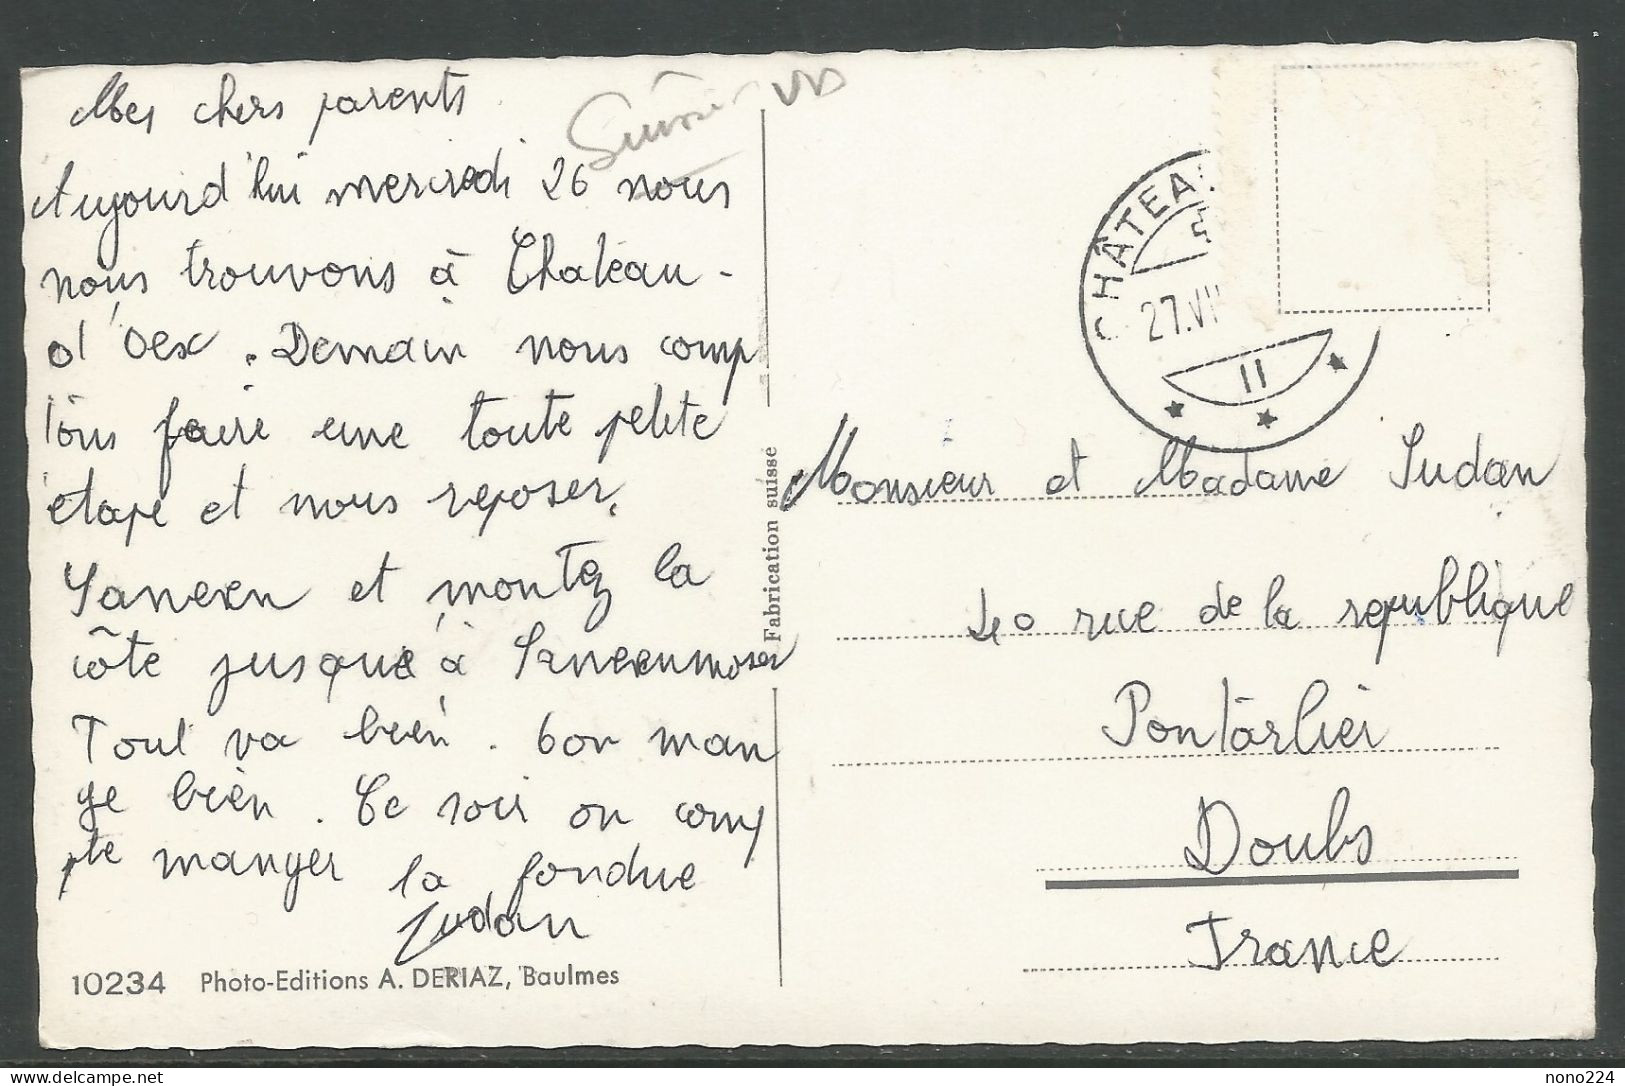 Mes chers parents
Aujourd'hui mercredi 26 nous
nous trouvons à Chateau-
d'Oex. Demain nous comp
tons faire une toute petite
etape et nous reposer,
Sanenen et montez la
côte jusque à Sanenenmoser
Tout va bien. bon man
ge bien. Ce soir on comp
pte manger la fondue
Sudan
10234 Photo-Editions A. DERIAZ, Baulmes
Suisse - VD
Fabrication suisse
CHÂTEA
27.VII
11
Monsieur et Madame Sudan
40 rue de la republique
Pontarlier
Doubs
France
nono224